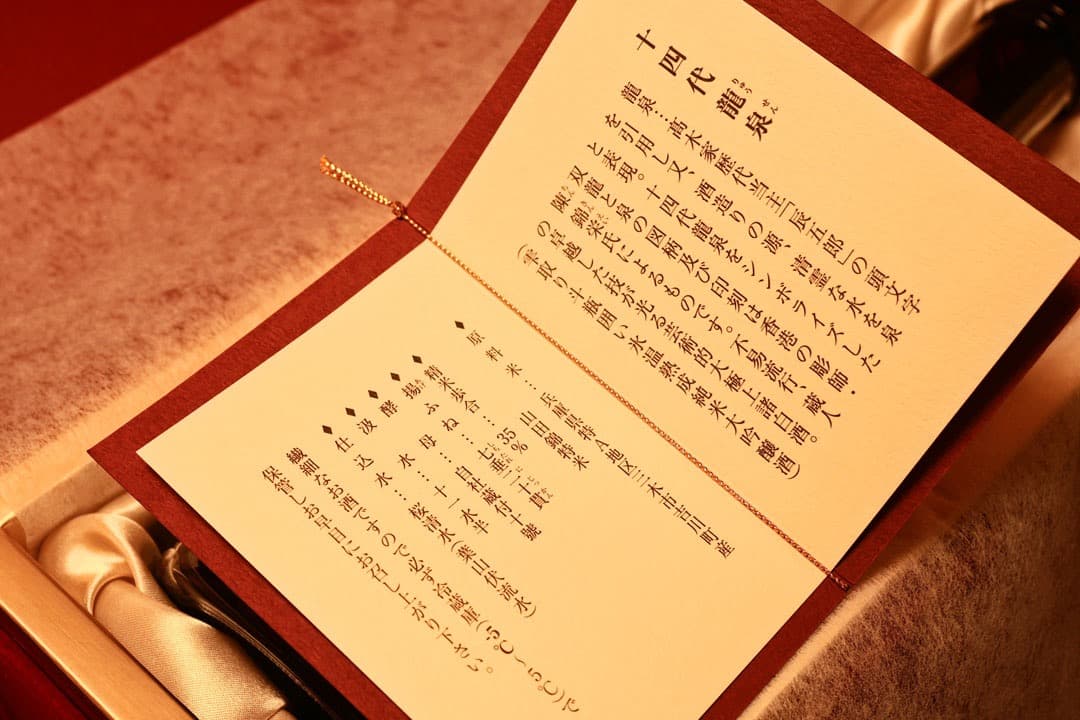 十四代龍泉
りゅうせん
龍泉…髙木家歴代当主「辰五郎」の頭文字
を引用し又、酒造りの源、清霊な水を泉
と表現。十四代龍泉をシンボライズした
双龍と泉の図柄及び印刻は香港の彫師・
陳錦栄氏によるものです。不易流行、蔵人
の卓越した技が光る芸術的大極上諸白酒。
(雫取り斗瓶囲い氷温熟成純米大吟醸酒)
◆原料米…兵庫県特A地区三木市吉川町産
山田錦特米
◆精米歩合…35%
◆揚ふね…七垂二十貫
◆酵母…白祉蔵付十號
◆汲水…十一水半
◆仕込水…桜清水(葉山伏流水)
繊細なお酒ですので必ず冷蔵庫(-5℃〜5℃)で
保管しお早目にお召し上がり下さい。